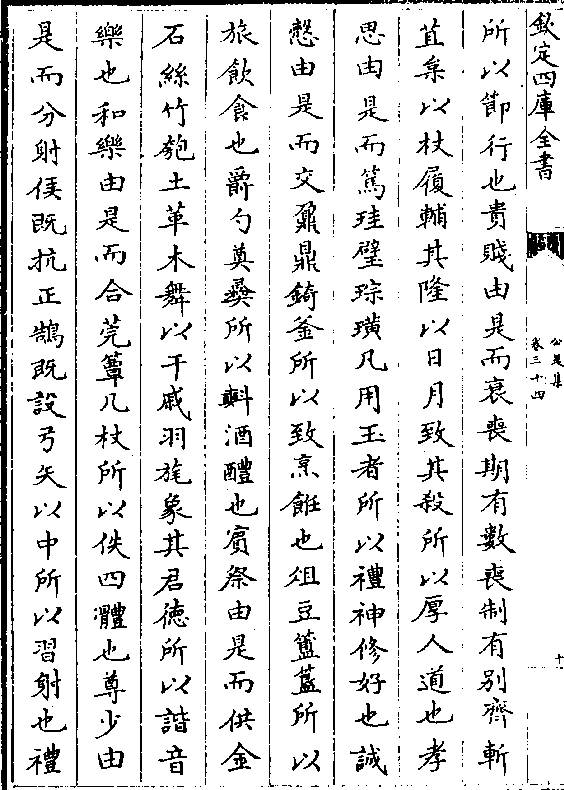 欽定四庫全書
公是集
卷三十四
十
所以節行也貴賤由是而衰喪期有數喪制有别齊斬
苴枲以杖屨輔其隆以日月致其殺所以厚人道也孝
思由是而篤珪璧琮璜凡用玉者所以禮神修好也誠
慤由是而交鼐鼎錡釜所以致烹飪也俎豆簠簋所以
旅飲食也爵勺奠彛所以𣂏酒醴也賓祭由是而供金
石絲竹匏土革木舞以干戚羽旄象其君德所以諧音
樂也和樂由是而合莞簟几杖所以佚四體也尊少由
是而分射侯既抗正鵠既設弓矢以中所以習射也禮